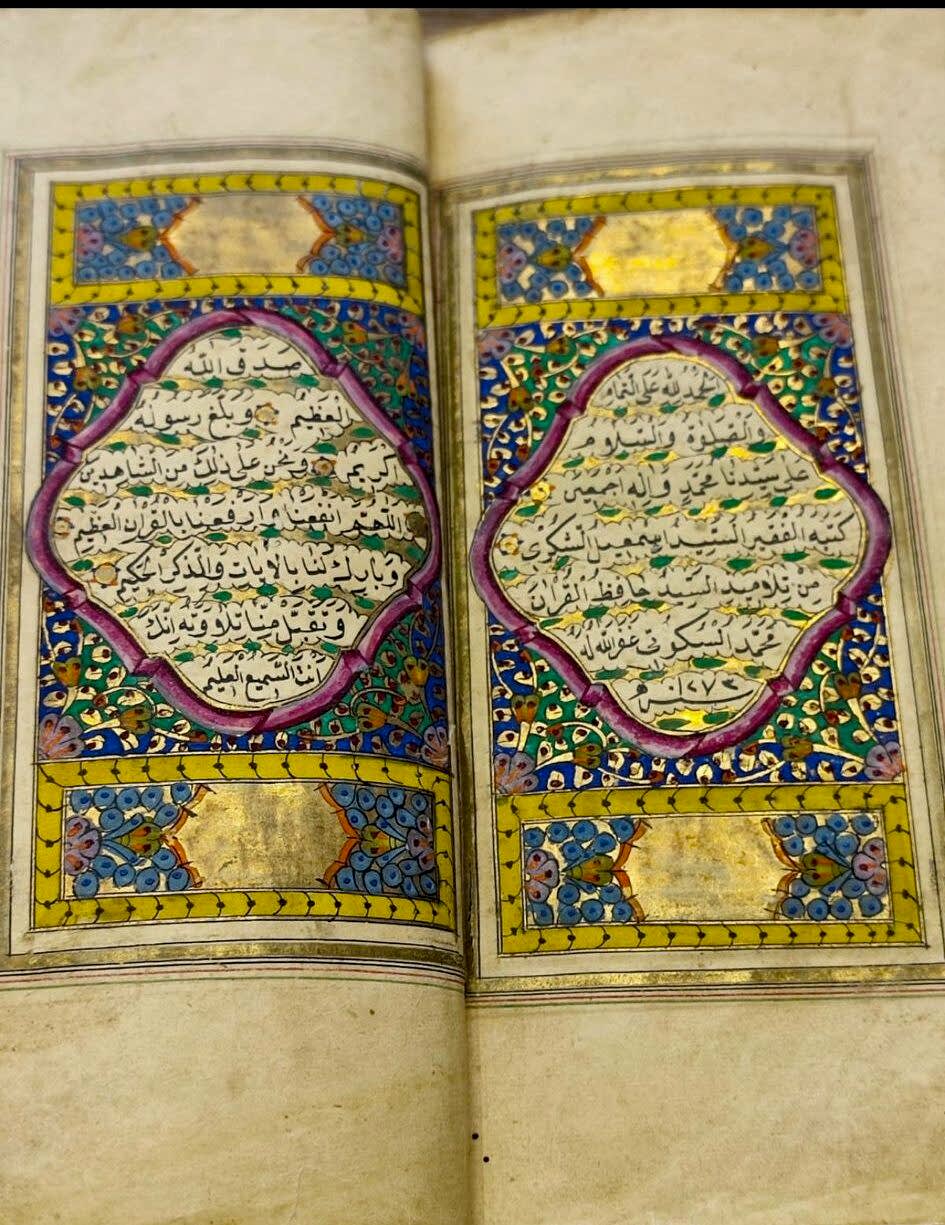 الحمد لله على التمام
والصلوة والسلام
على سيدنا محمد واله اجمعين
كتبه الفقير السيد اسمعيل الشكرى
من تلاميد السيد حافظ القران
محمد السكوتى عفر الله له
سنه ١٢٧٣ م
صدق الله
العظيم وبلغ رسوله
الكريم ونحن على ذلك من الشاهدين
اللهم انفعنا وارفعنا بالقران العظيم
وبارك لنا بالايات والذكر الحكيم
وتقبل منا تلاوته انك
انت السميع العليم